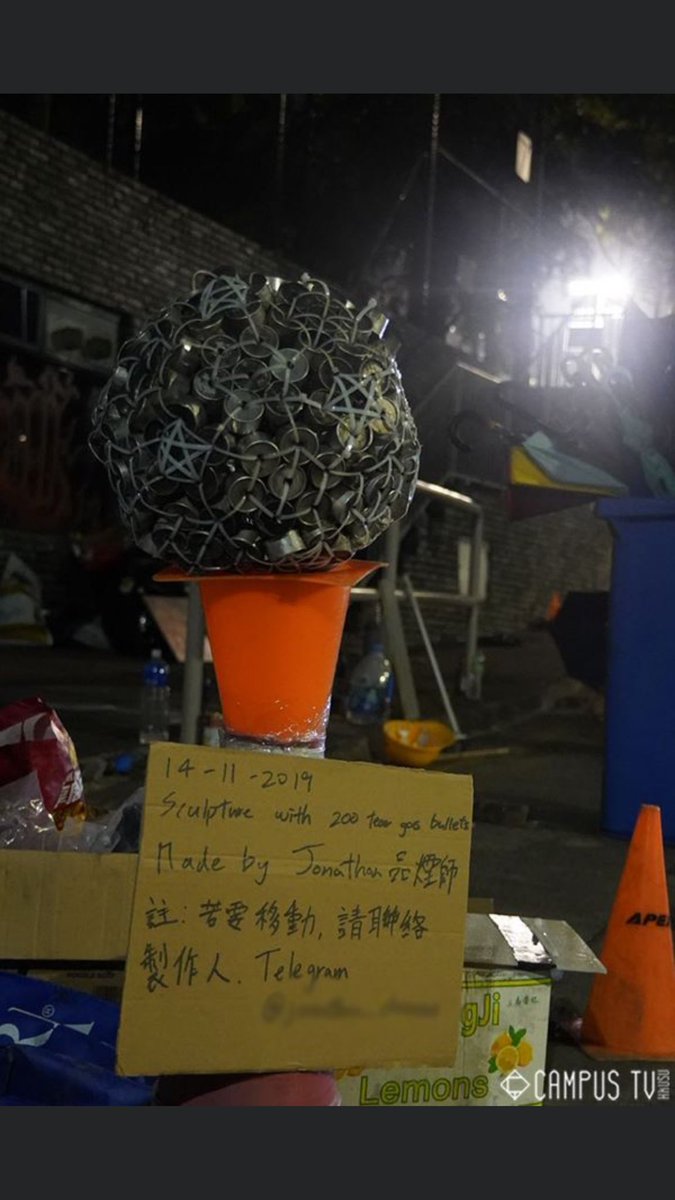 14-11-2019
Sculpture with 200 tear gas bullets
Made by Jonathan 品煙師
註：若要移動，請聯絡
製作人. Telegram
gJi
Lemons
APEX
CAMPUS TV
HKUSU